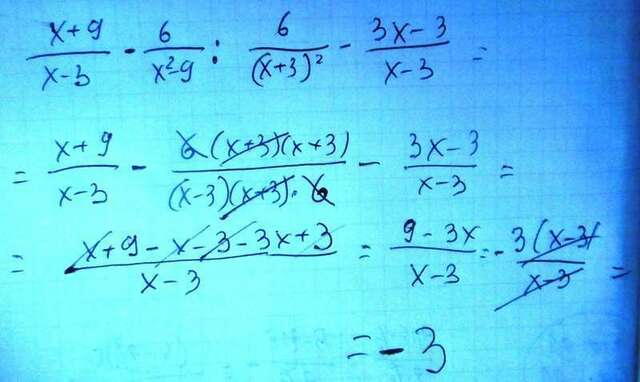 (x+9)/(x-3) - 6/(x²-9) : 6/(x+3)² - (3x-3)/(x-3) =
= (x+9)/(x-3) - (6(x+3)(x+3))/((x-3)(x+3)·6) - (3x-3)/(x-3) =
= (x+9-x-3-3x+3)/(x-3) = (9-3x)/(x-3) = -(3(x-3))/(x-3) =
= -3